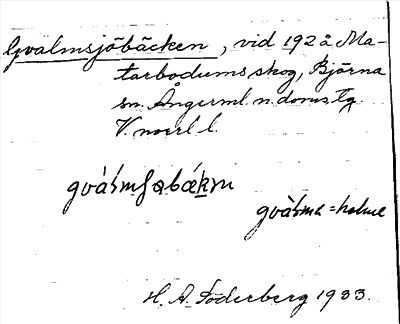 Gvalmsjöbäcken, vid 192 å Ma-
tarbodums skog, Björna
sn. Ångerml. n. doms. tg.
V. norrl l.
gvàĺmʃəbǽkm
gvàĺmə = halme
H. A. Söderberg 1933.